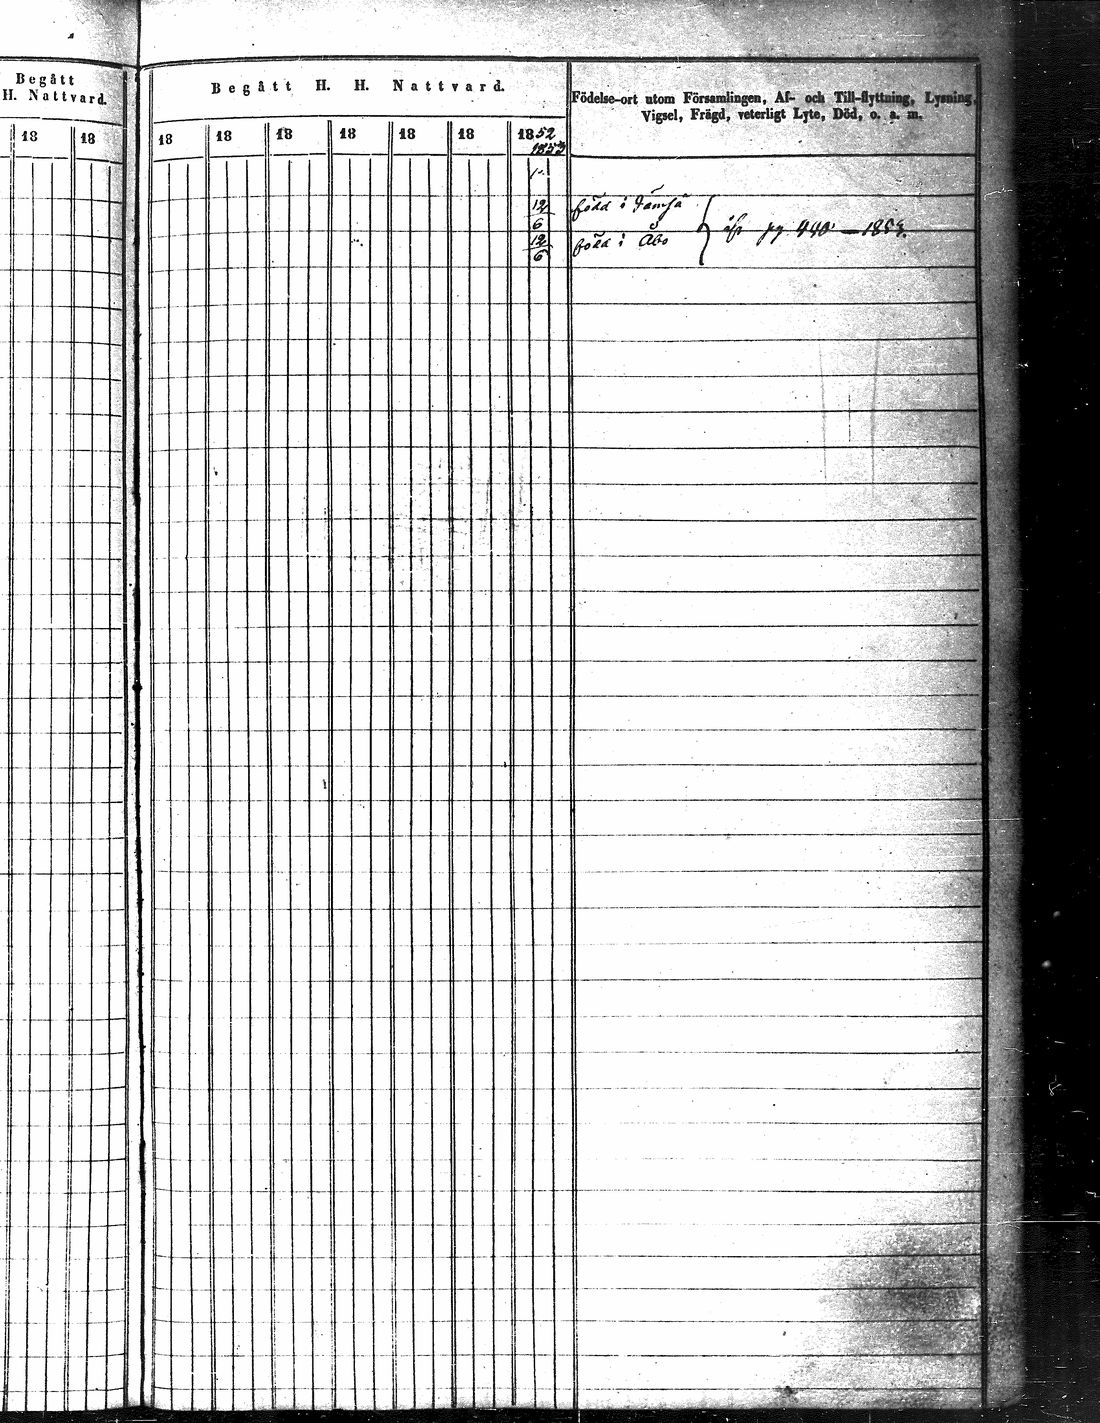 Begått
H. Nattvard.
18 18
Begått H. H. Nattvard.
Födelse-ort utom Församlingen, Af- och Till-flyttning, Lysning,
Vigsel, Frägd, veterligt Lyte, Död, o. a. m.
18 18 18 18 18 18 1852
1853
12 född i Jämsä
6
12 född i Åbo
6
pg 440 — 1853.